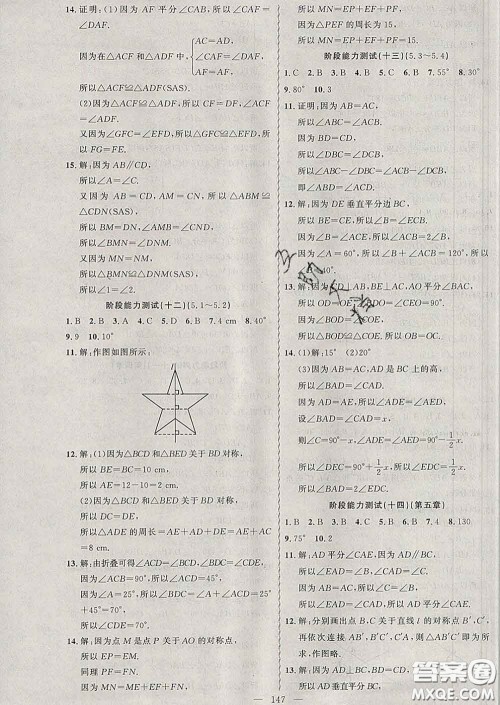 14. 证明:(1)因为 AF 平分∠CAD,所以∠CAF=
∠DAF.
在△ACF 和△ADF 中, { AC=AD,
∠CAF=∠DAF,
AF=AF,
所以△ACF≌△ADF(SAS).
(2)因为△ACF≌△ADF,
所以∠ACF=∠ADF.
又因为∠GFC=∠EFD,所以△GFC≌△EFD,所
以 FG=FE.
15. 解:因为 AB∥CD,
所以∠A=∠C.
又因为 AB=CD,AM=CN,所以△ABM≌
△CDN(SAS),
所以 BM=DN,∠AMB=∠CND,
所以∠BMN=∠DNM.
所以△BMN≌△DNM(SAS).
所以∠1=∠2.
阶段能力测试(十二)(5.1~5.2)
1. B 2. B 3. A 4. B 5. B 6. D 7. 4 8. 60°
9. 9 10. 10°
11. 解:作图如图所示:
l
12. 解:(1)因为△BCD 和△BED 关于 BD 对称,
所以 BE=BC=10 cm,
所以 AE=12-10=2 cm.
(2)因为△BCD 和△BED 关于 BD 对称,
所以 DC=DE,
所以△ADE 的周长=AE+AD+DE=AE+AC
=8 cm.
13. 解:由折叠可得∠ACD=∠BCD,∠BDC=∠CDE,
因为∠ACB=90°,所以∠ACD=45°,
因为∠A=25°,所以∠BDC=∠A+∠ACD=25°
+45°=70°,
所以∠CDE=70°.
14. 解:因为点 M 是点 P 关于 AO 的对称点,
所以 EM=EP.
同理 PF=FN.
因为 MN=ME+EF+FN,
所以 MN=EP+EF+PF.
因为△PEF 的周长为 15,
所以 MN=EP+EF+PF=15.
阶段能力测试(十三)(5.3~5.4)
1. C 2. B 3. B 4. B 5. D 6. A 7. 35° 8. 30°
9. 80° 10. 3
11. 证明:因为 AB=AC,
所以∠ABC=∠ACB.
因为 BD=CD,
所以∠DBC=∠DCB,
所以∠ABC-∠DBC=∠ACB-∠DCB,
即∠ABD=∠ACD.
12. 解:因为 DE 垂直平分边 BC,
所以 BE=CE,
所以∠ECB=∠B.
因为∠ACB=2∠B.
因为∠A=60°,所以∠B+∠ACB=120°,
所以
13. 解:
所以 OD=OE,∠ODC=∠OEC=90°,
所以∠BOD=∠COE,
所以△BOD≌△COE,
所以 OB=OC.
14. (1)解:15° (2)20°
(3)因为 AB=AC,AD 是 BC 上的高,
所以∠BAD=∠CAD.
因为 AD=AE,所以∠ADE=∠AED.
设∠BAD=∠CAD=x,
则∠C=90°-x,∠AED=90°-1/2x,
所以∠EDC=90°-1/2x-(90°-x)=1/2x,
所以∠BAD=2∠CDE.
阶段能力测试(十四)(第五章)
1. C 2. B 3. B 4. D 5. B 6. B 7. 4 8. 130
9. 75° 10. 3
11. 解:AD 平分∠CAE,AD∥BC,
所以∠EAD=∠CAD,∠EAD=∠B,∠CAD=
∠C,
所以∠B=∠C,
所以 AB=AC.
12. 解:分别画出点 B、C 关于直线 l 的对称点 B′、C′,
再依次连接 AB′、B′C′、C′A,则△AB′C′即为所
求,作图略.
13. 解:因为 AD 垂直平分 BC,
所以 AB=AC,
147
答案圈
MXQE.COM